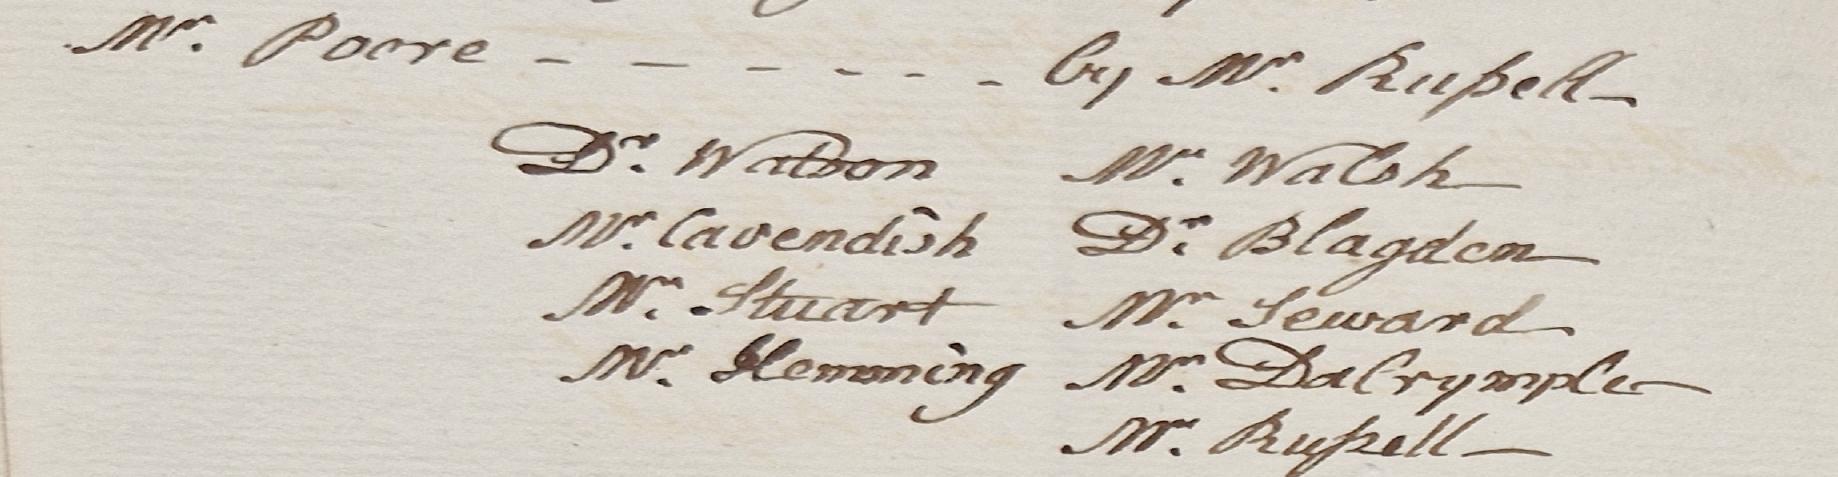 Mr. Poore - - - - - - - by Mr. Rußell
Dr. Watson Mr. Walsh
Mr. Cavendish Dr. Blagden
Mr. Stuart Mr. Seward
Mr. Hemming Mr. Dalrymple
Mr. Rußell